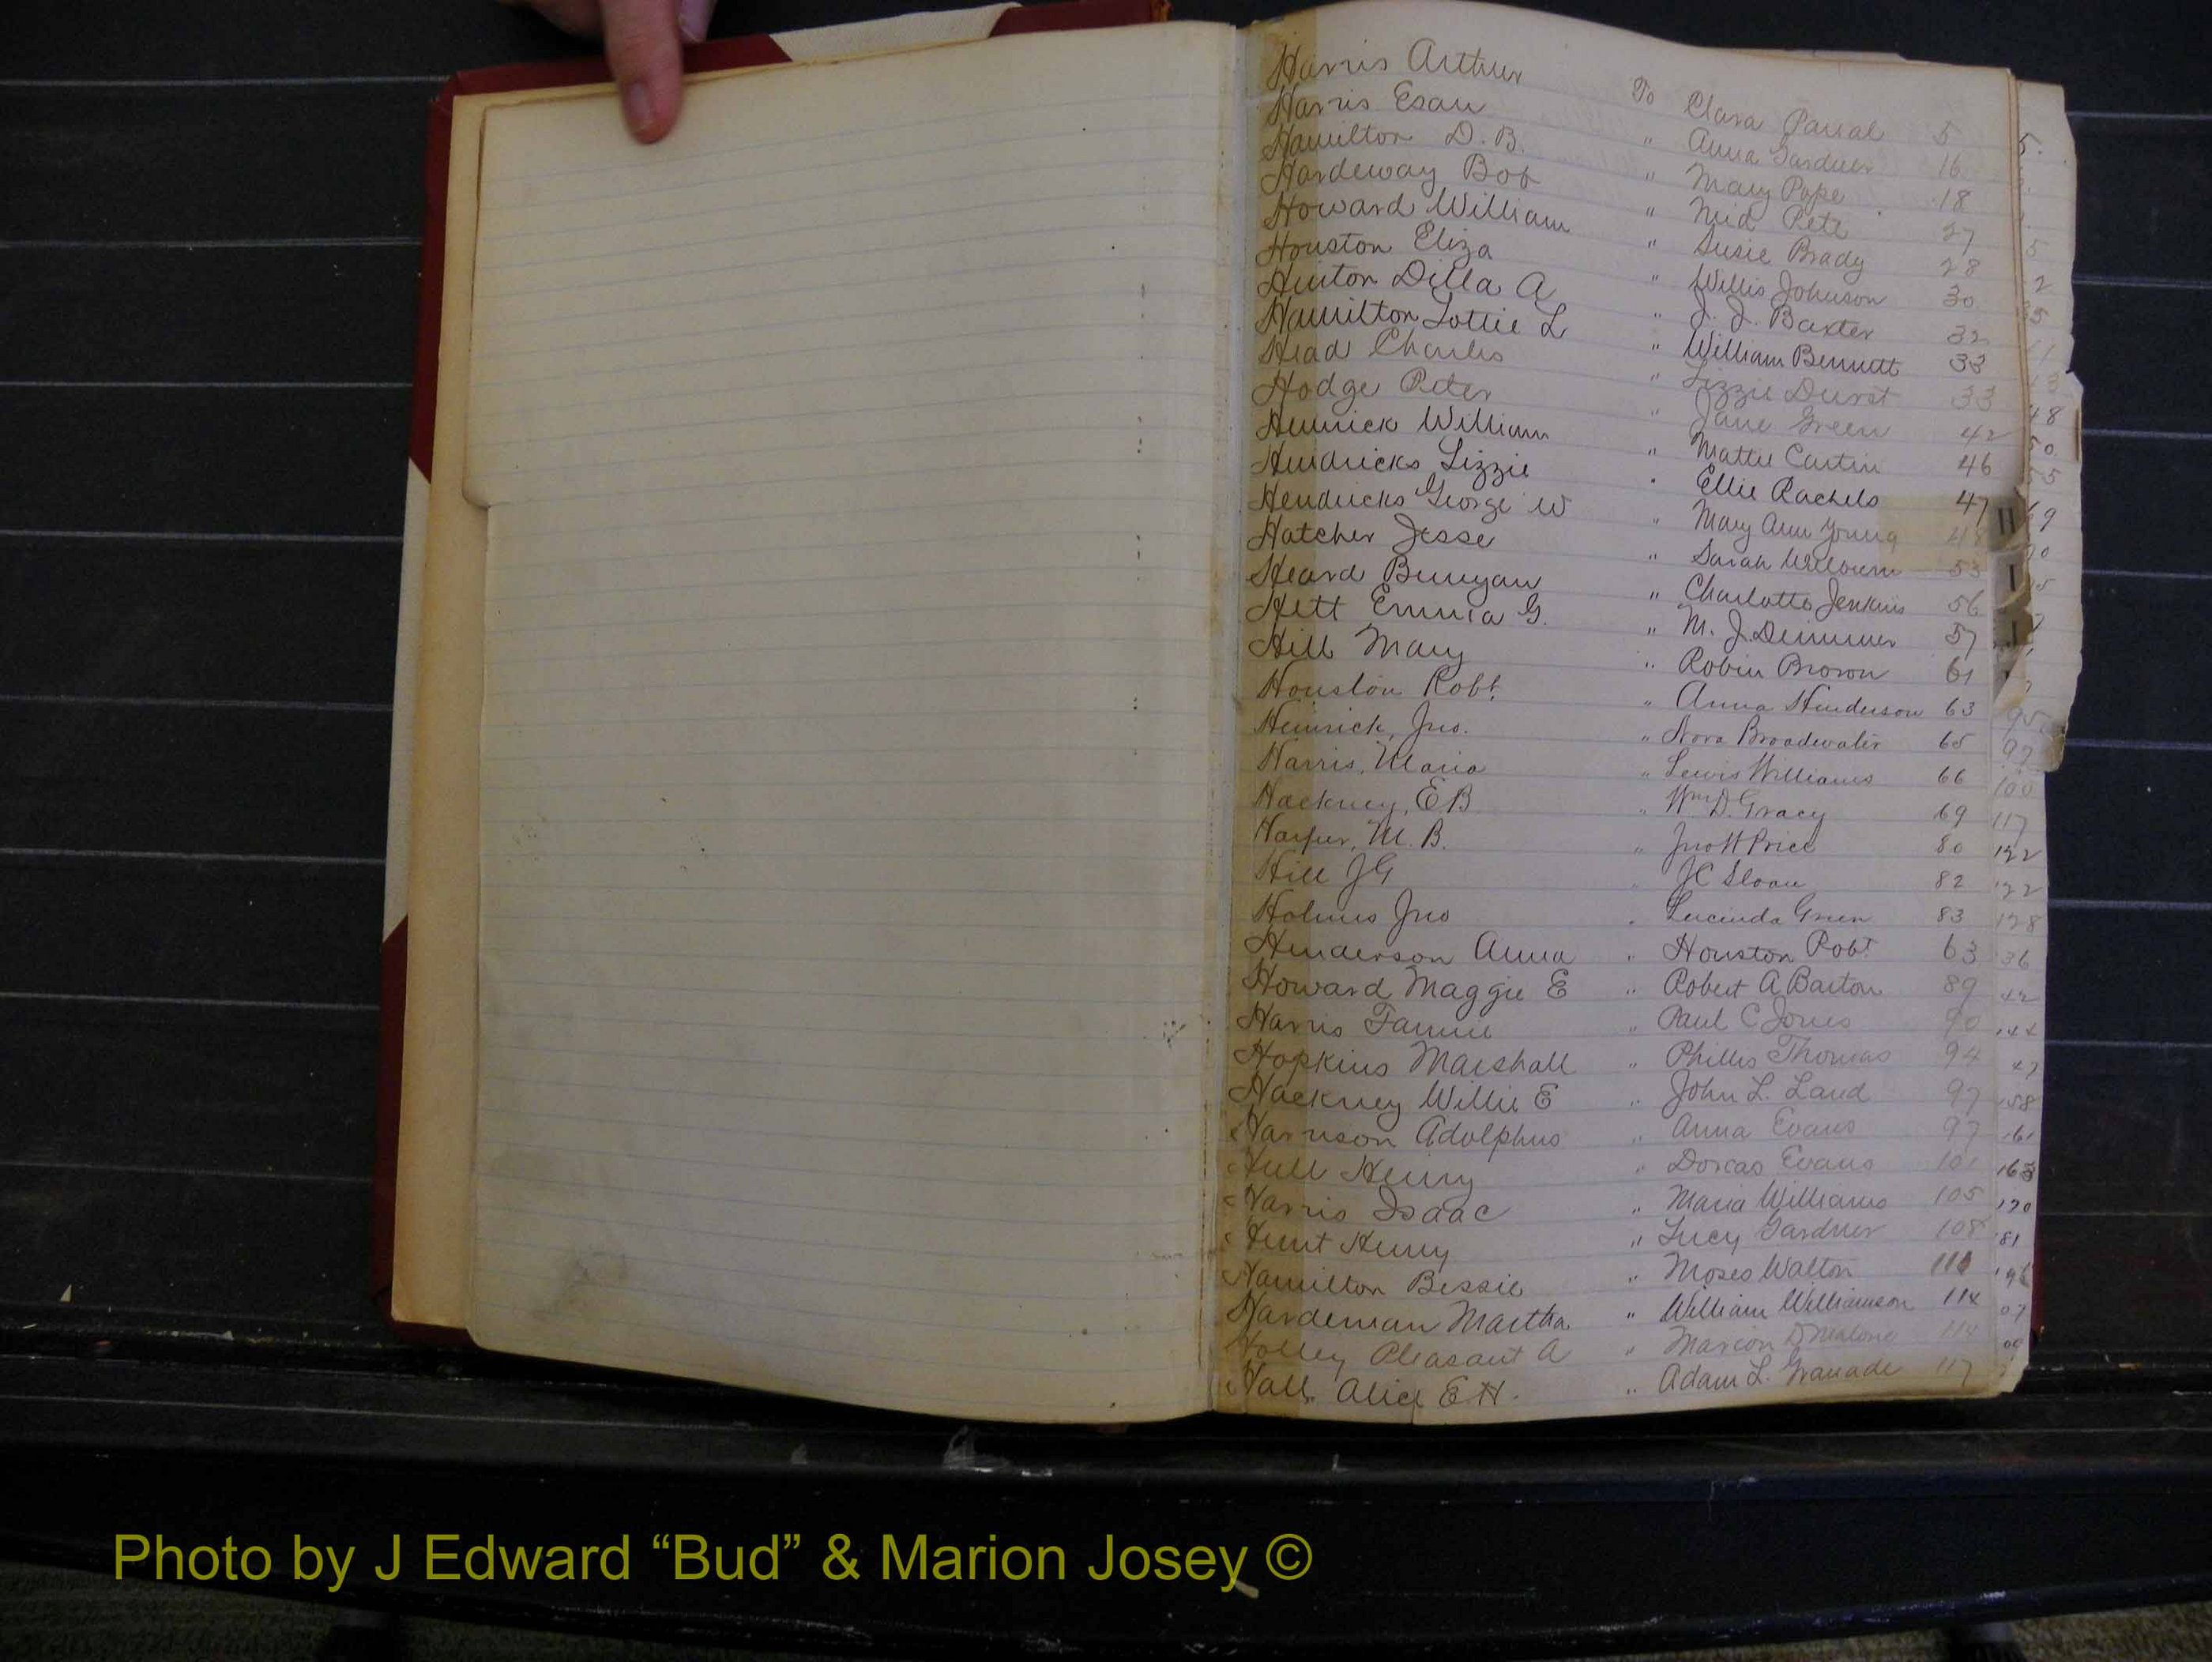 Harris Arthur To Clara Parral 5
Harris Esau " Anna Gardner 16
Hamilton D. B. " Mary Pope 18
Hardeway Bob " Pete 27
Howard William " Susie Brady 28
Houston Eliza " Willis Johnson 30
Hinton Dilla A " J. J. Baxter 32
Hamilton Lottie L " William Bennett 33
Head Charles " Lizzie Durst 33
Hodge Peter " Jane Green 42
Heinrick William " Mattie Castin 46
Hendricks Lizzie " Ellie Rachels 47
Hendricks George W " Mary Ann Young 48
Hatcher Jesse " Sarah 53
Heard Bunyan " Charlotte Jenkins 56
Hett Emma G. " M. J. Demmer 57
Hill Mary " Robin Brown 61
Houston Robt. " Anna Henderson 63
Heinrick, Jno. " Nora Broadwater 65
Harris, Maria " Lewis Williams 66
Hackney, E B " Wm D. Gracy 69
Harper, M. B. " Jno H Price 80
Hill J G " J C Sloan 82
Holmes Jno " Lucinda Green 83
Henderson Anna " Houston Robt 63
Howard Maggie E " Robert A Barton 89
Harris Fannie " Paul C Jones 90
Hopkins Marshall " Phillis Thomas 94
Hackney Willie E " John L. Land 97
Harrison Adolphus " Anna Evans 97
Hull Henry " Dorcas Evans 101
Harris Isaac " Maria Williams 105
Hunt Henry " Lucy Gardner 108
Hamilton Bessie " Moses Walton 111
Hardeman Martha " William Williamson 114
Holley Pleasant A " Marion D Malone 114
Hall Alice E H. " Adam L. Granade 117
H
I
J
48
50
55
95
97
100
117
122
122
128
163
170
Photo by J Edward “Bud” & Marion Josey ©